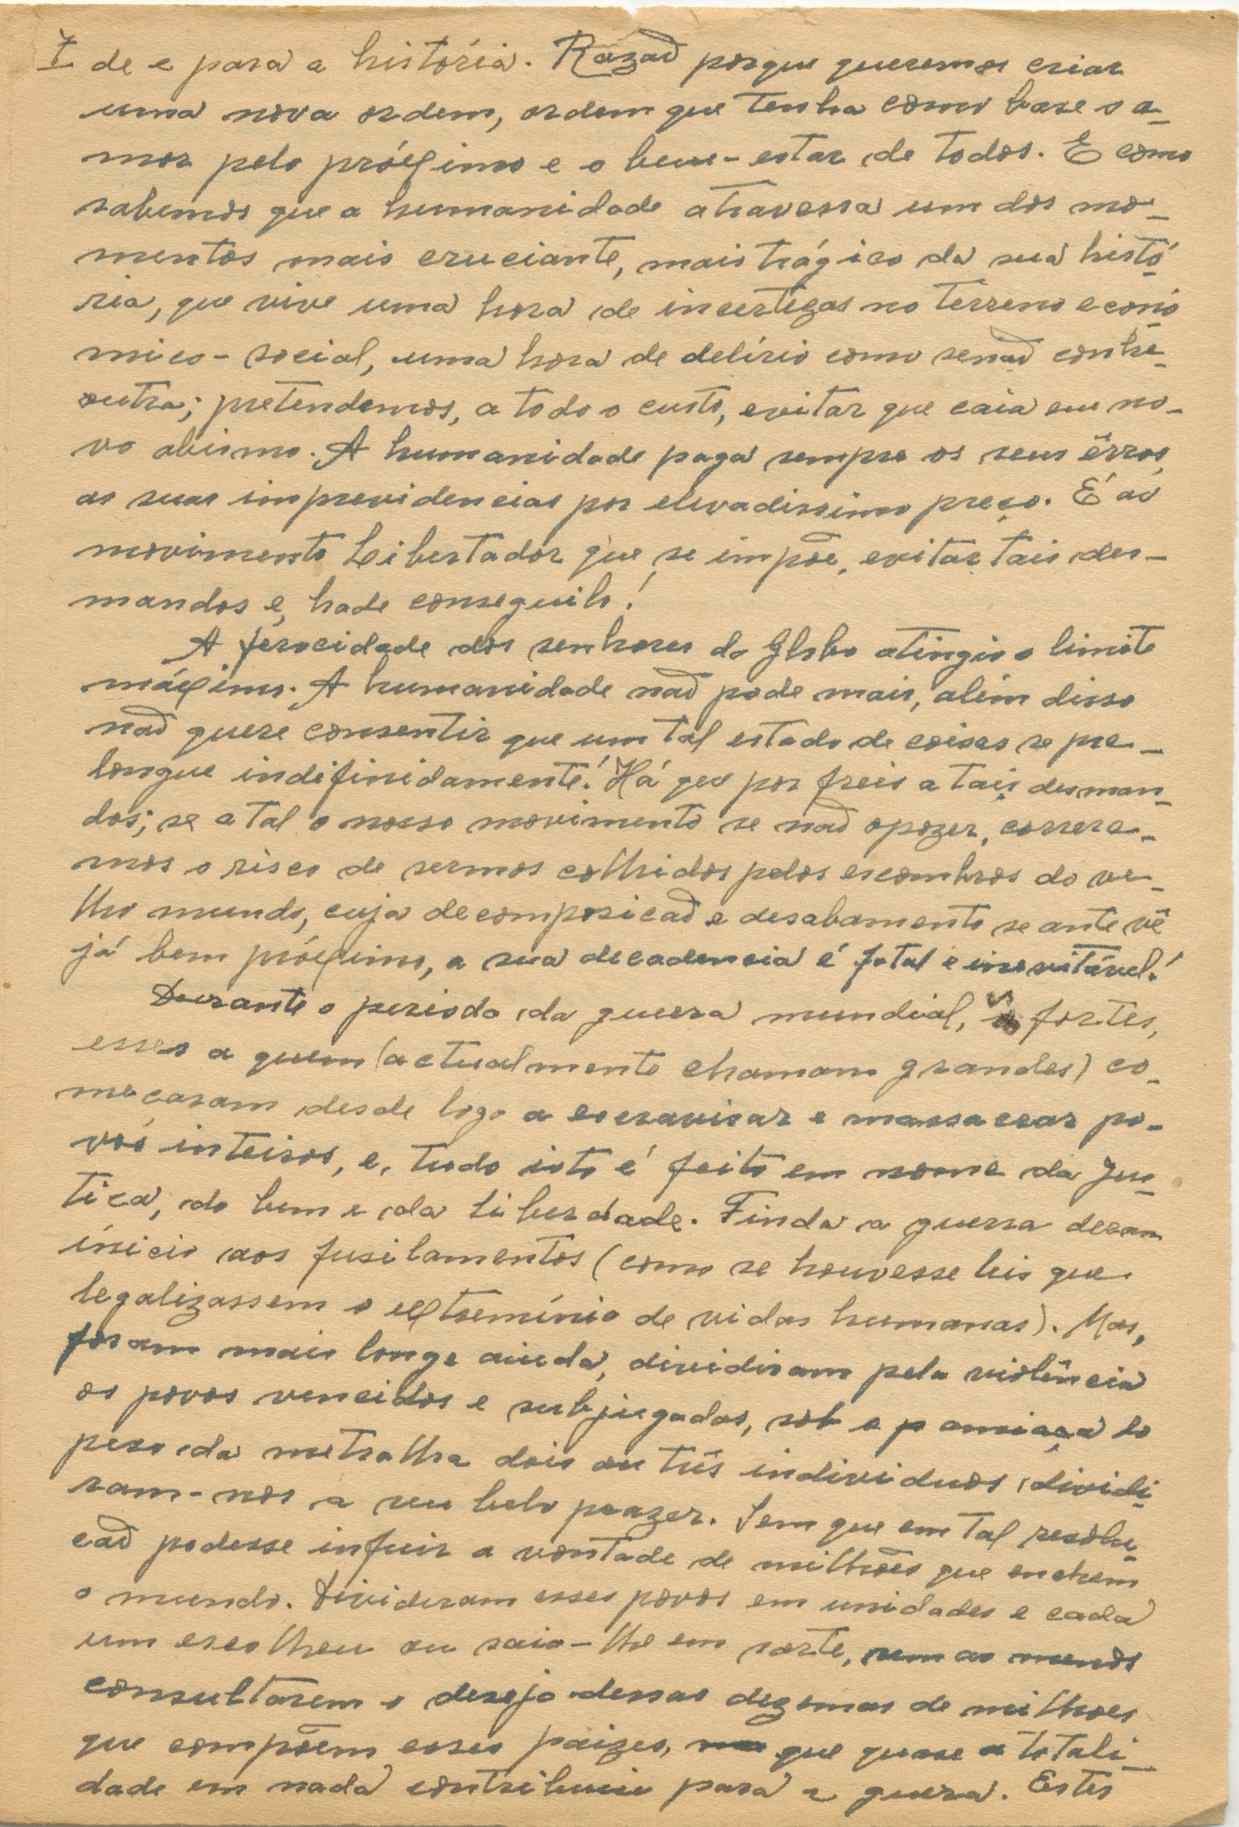 I de e para a história. Razaõ porque queremos criar
uma nova ordem, ordem que tenha como base o a-
mor pelo próximo e o bem-estar de todos. E como
sabemos que a humanidade atravessa um dos mo-
mentos mais cruciante, mais trágico da sua histó-
ria, que vive uma hora de incertezas no terreno econó
mico-social, uma hora de delírio como senaõ conhe-
outra; pretendemos, a todo o custo, evitar que caia em no-
vo abismo. A humanidade paga sempre os seus êrros,
as suas imprevidencias por elevadissimo preço. É ao
movimento Libertador que se impõe, evitar tais des-
mandos e, hade conseguilo!
A ferocidade dos senhores do Globo atingio o limite
máximo. A humanidade naõ pode mais, além disso
naõ quere consentir que um tal estado de coisas se pre-
longue indifinidamente! Há que por freio a tais desman-
dos; se a tal o nosso movimento se naõ opozer, correre-
mos o risco de sermos colhidos pelos escombros do ve-
lho mundo, cuja decomposicaõ e desabamento se ante vê
já bem próximo, a sua decadencia é fatal e inevitável!
Durante o periodo da guerra mundial, os fortes,
esses a quem (actualmente chamam grandes) co-
meçaram desde logo a escravisar e massacrar po-
vos inteiros, e, tudo isto é feito em nome da Jus-
tica, do bem e da liberdade. Finda a guerra deram
início aos fusilamentos (como se houvesse leis que
legalizassem o extremínio de vidas humanas). Mas,
foram mais longe ainda, dividiram pela violência
os povos vencidos e subjugados, sob a ameaça do
peso da metralha dois ou três individuos dividi-
ram-nos a seu belo prazer. Sem que em tal resolu-
caõ podesse infuir a vontade de milhões que enchem
o mundo. Divideram esses povos em unidades e cada
um escolheu ou saio-lhe em sorte, sem ao menos
consultarem o desejo dessas dezenas de milhoes
que compõem esses paizes, que quase a totali-
dade em nada contribuiu para a guerra. Estes